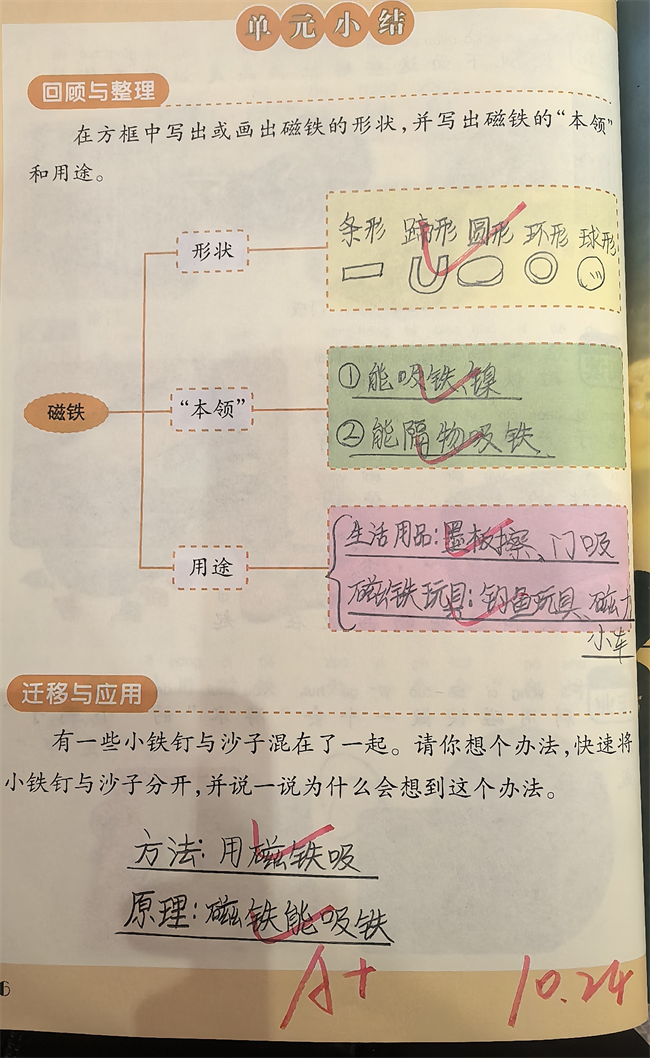 单元小结
回顾与整理
在方框中写出或画出磁铁的形状,并写出磁铁的“本领”
和用途。
形状
条形 蹄形 圆形 环形 球形
磁铁
“本领”
①能吸铁、镍
②能隔物吸铁、
用途
生活用品:墨板擦、门吸
磁铁玩具:钓鱼玩具、磁力
小车
迁移与应用
有一些小铁钉与沙子混在了一起。请你想个办法,快速将
小铁钉与沙子分开,并说一说为什么会想到这个办法。
方法:用磁铁吸
原理:磁铁能吸铁
A+ 10.24
6